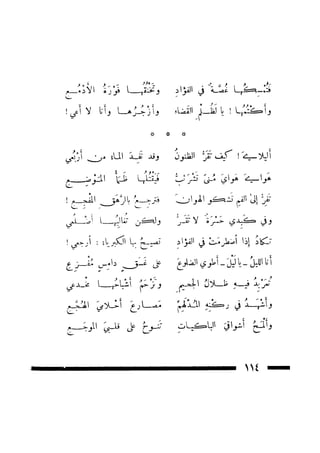 فتمسكها غصة في الفؤاد وتخنقها فورة الأدمع
وأكتمها ! يا لظلم القضاء وأزجرها وأنا لا أعي !
* * *
أليلاي ! كيف تفر الظنون وقد تفيد الماء من أزمعي
هواي هواي منى تشرئب فيقتلها ظمأ الموضع
تفر إلى الفم تشكو الهوان فترجع بالرهق المفجع !
وفي كبدي حسرة لا تقر ولكن تغالبها أضلعي
تكاد إذا اضطرمت في الفؤاد تصيح بها الكبرياء : ارجعي !
أنا الليل - يا ليل - أطوي الضلوع على غسق دامس مفزع
تعربد فيه ظلال الجحيم وتزحم أشباحها مخدعي
وأشهد في ركنه المدلهم مصارع أحلامي الهجع
وألمح أشواقي الباكيات تنوح على قلبي الموجع
١١٤